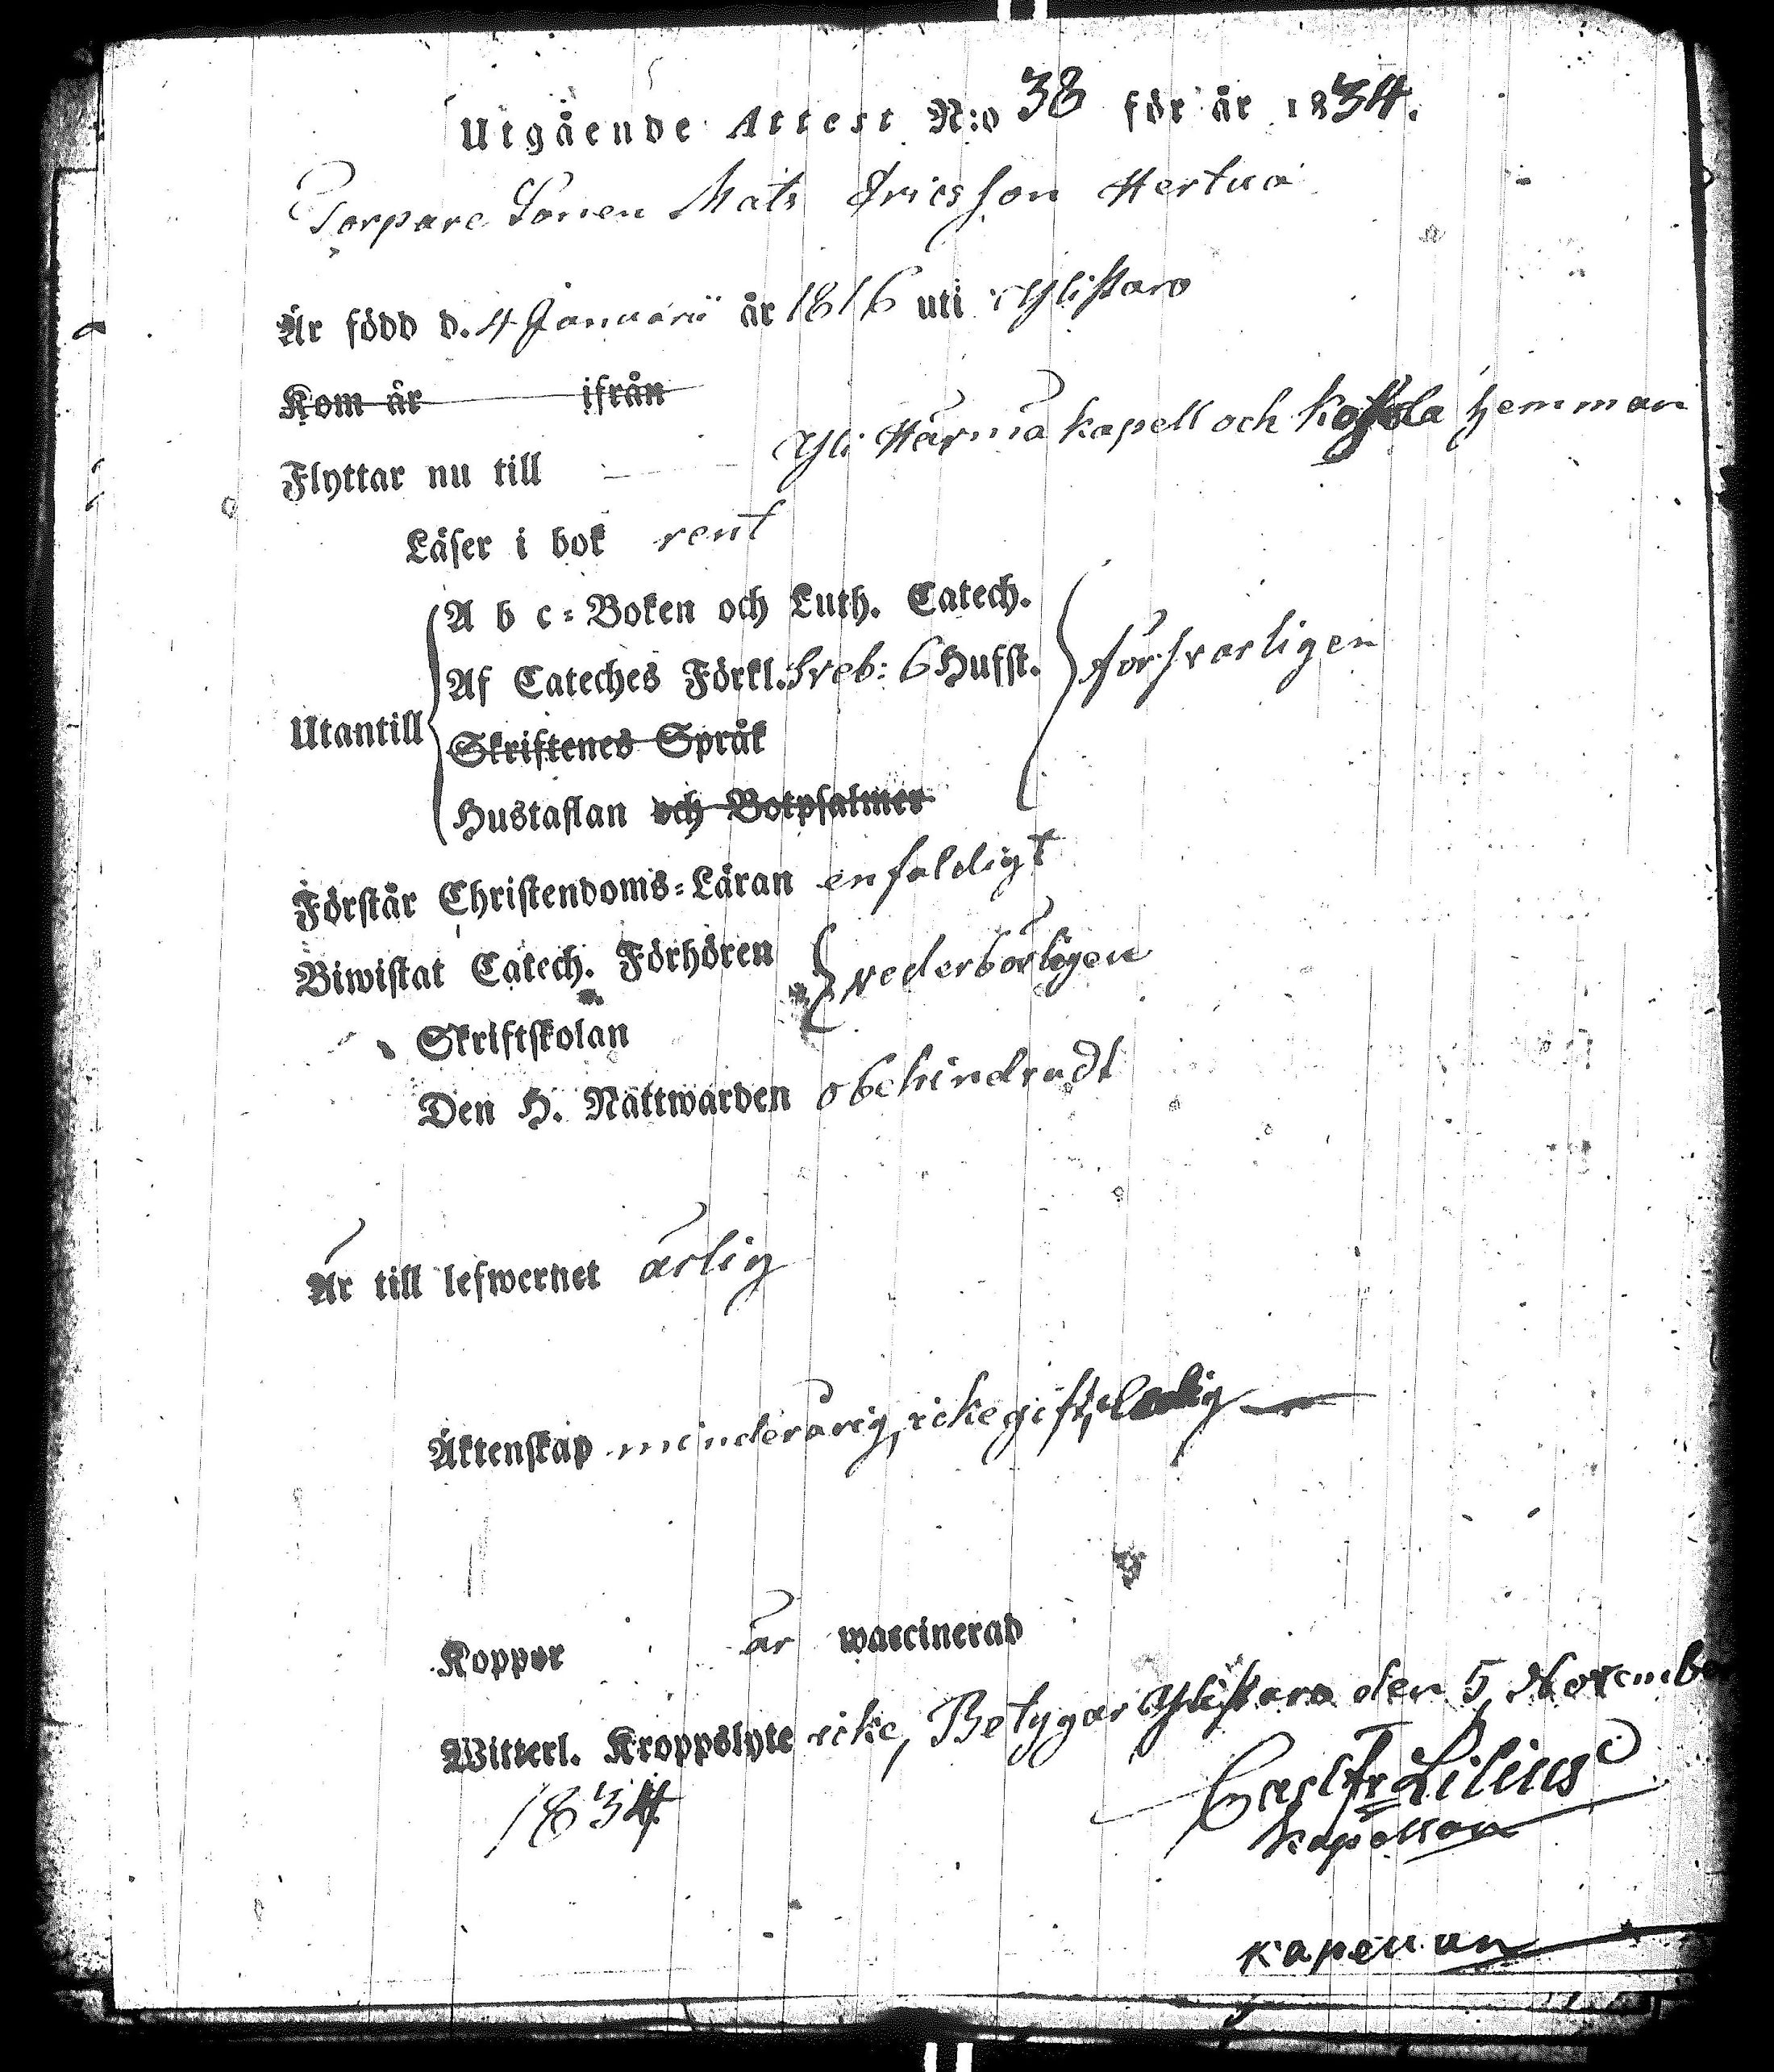 Utgående Attest N:o 38 för år 1834.
Torpare Sonen Mats Ericsson Hertua
Är född d. 4 Januarii år 1816 uti Ylistaro
Kom år ifrån
Flyttar nu till Yli Härmä kapell och hemman
Läser i bok rent
A b c-Boken och Luth. Catech.
Af Cateches Förkl. Sveb: 6 Hufst. försvarligen
Utantill
Skriftenes Språk
Hustaflan och Botpsalmer
Förstår Christendoms-Läran enfaldigt
Biwistat Catech. Förhören vederbörligen
Skriftskolan
Den H. Nattwarden obehindradt
Är till lefwernet ärlig
Äktenskap minderårig, icke gift, ledig
Koppor är waccinerad
Witterl. Kroppslyte icke, Betygar Ylistaro den 5 November
1834.
Carl Fr Lilius
kapellan
kapellan